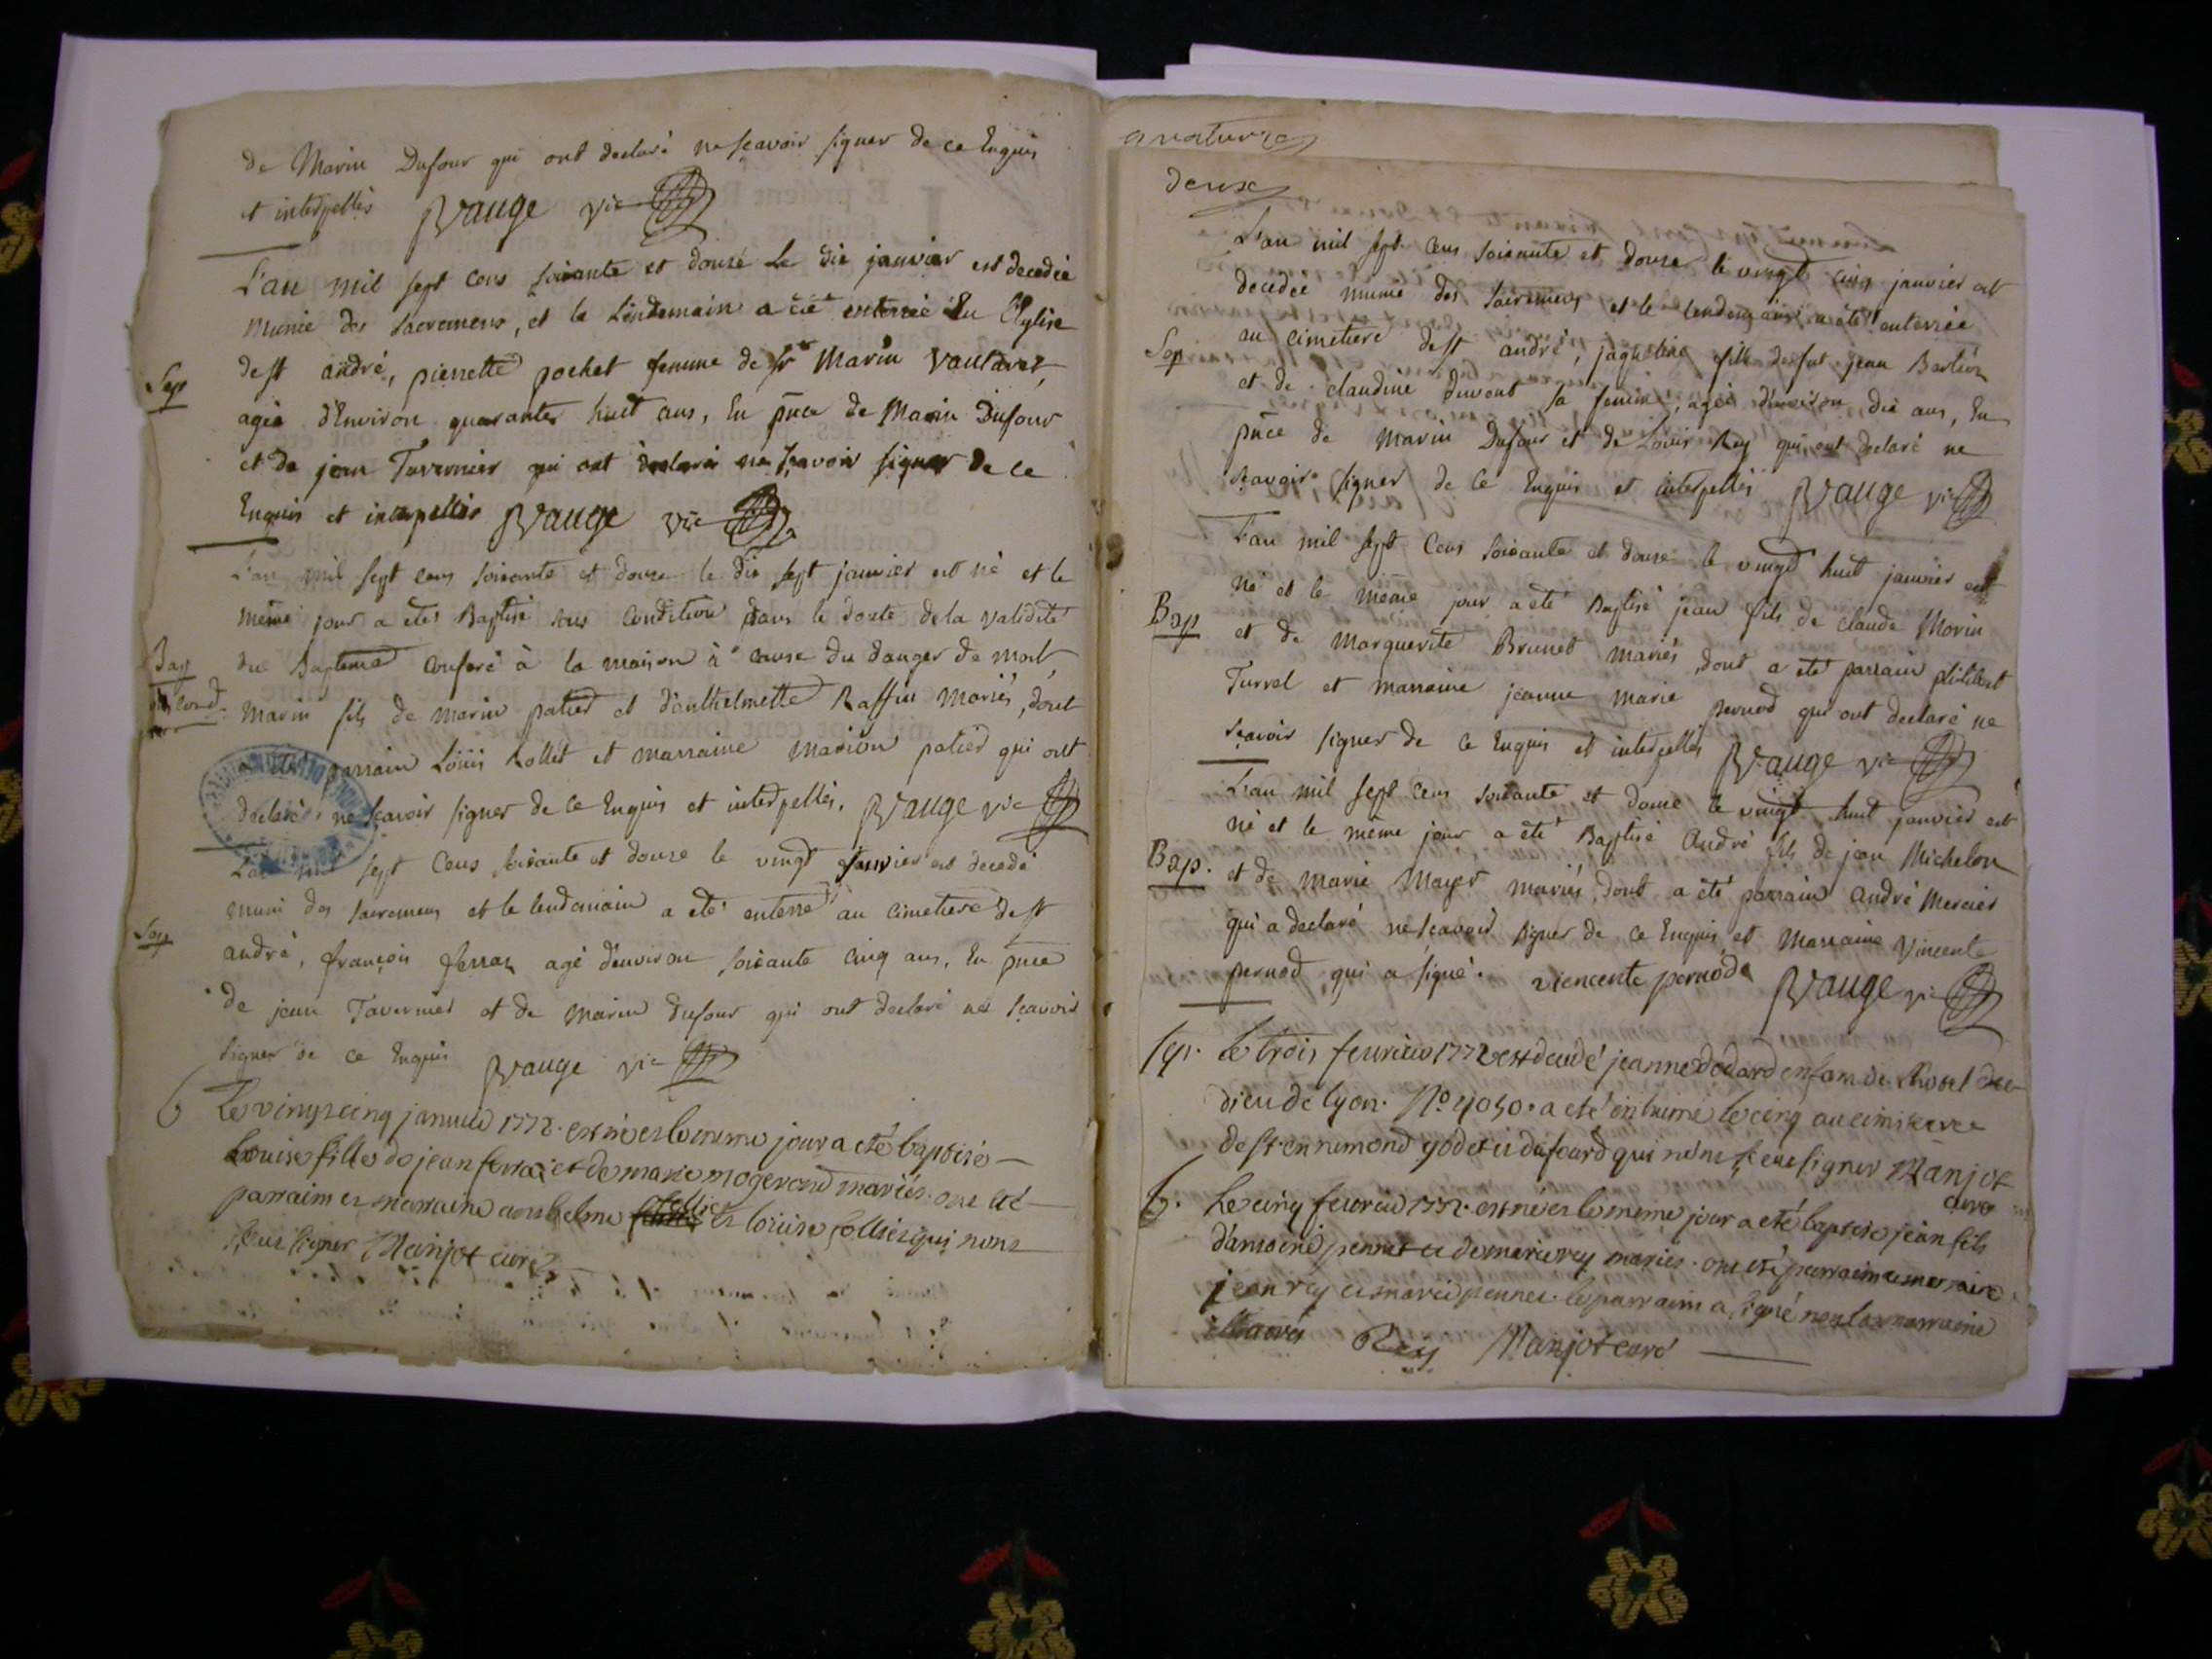 de Marin Dufour qui ont declaré ne sçavoir signer de ce Enquis
et interpellés JVauge vic
L'an mil sept cens soixante et douze Le dix janvier est decedée
munie des sacremens, et le Lendemain a été enterrée En l'Eglise
Sep
de st andré, pierrette pochet femme de sr Marin Vautaret
agée d'Environ quarante huit ans, En pñce de Marin Dufour
et de jean Tavernier qui ont declaré ne sçavoir signer de ce
Enquis et interpellés JVauge vic
L'an mil sept cens soixante et douze le dix sept janvier est né et le
même jour a eté Baptisé sous Condition dans le doute de la validité
Bap
du Bapteme Conferé à la maison à cause du danger de mort,
Cond.
Marin fils de Marin patied et d'anthelmette Raffin mariés, dont
a eté parrain Loüis Rollet et marraine Marion patied qui ont
declaré ne sçavoir signer de ce Enquis et interpellés. JVauge vic
L'an mil sept Cens soixante et douze le vingt janvier est decedé
muni des sacremens et le lendemain a eté enterré au cimetiere de st
Sep
andré, françois ferraz agé d'environ soixante cinq ans, En pñce
de jean Tavernier et de Marin Dufour qui ont declaré ne sçavoir
signer de ce Enquis JVauge vic
b Le vingt cinq janvier 1772. est né et le meme jour a eté baptisé
Louise fille de jean ferraz et de marie mogerand mariés. ont eté
parraim et marraine anthelme follier et louise follier qui n'ont
sçeu signer Manjot curé
quatorze
deux
L'an mil sept Cens soixante et douze le vingt cinq janvier est
decedée munie des sacremens et le lendemain a eté enterrée
Sep
au cimetiere de st andré, jaqueline fille de fut jean Barlier
et de claudine duvont sa femme, agée d'environ dix ans, En
pñce de Marin Dufour et de Loüis Rey qui ont declaré ne
sçavoir signer de ce Enquis et interpellés JVauge vic
L'an mil sept Cens soixante et douze le vingt huit janvier est
né et le même jour a eté Baptisé jean fils de claude Morin
Bap
et de Marguerite Brunet mariés, dont a eté parrain philibert
Turrel et marraine jeanne marie pernod qui ont declaré ne
sçavoir signer de ce Enquis et interpellés JVauge vic
L'an mil sept Cens soixante et douze le vingt huit janvier est
né et le même jour a eté Baptisé André fils de jean Michelon
Bap.
et de Marie Mayer mariés, dont a été parrain André Mercier
qui a declaré ne sçavoir signer de ce Enquis et Marraine Vincente
pernod, qui a signé. viencente pernode JVauge vic
sep. Le trois feurier 1772 est decedé jeanne dodard enfam de lhotel
dieu de lyon. No 4050. a eté inhumé le cinq au cimitiere
de st ennemond godet et dufourd qui n'ont sceu signer Manjot
curé
b. Le cinq feurier 1772. est né et le meme jour a eté baptisé jean fils
d'antoine pennet et de marie rey mariés. ont eté parraim et marraine
jean rey et marie pennet. le parraim a signé non la marraine
Rey Manjot curé